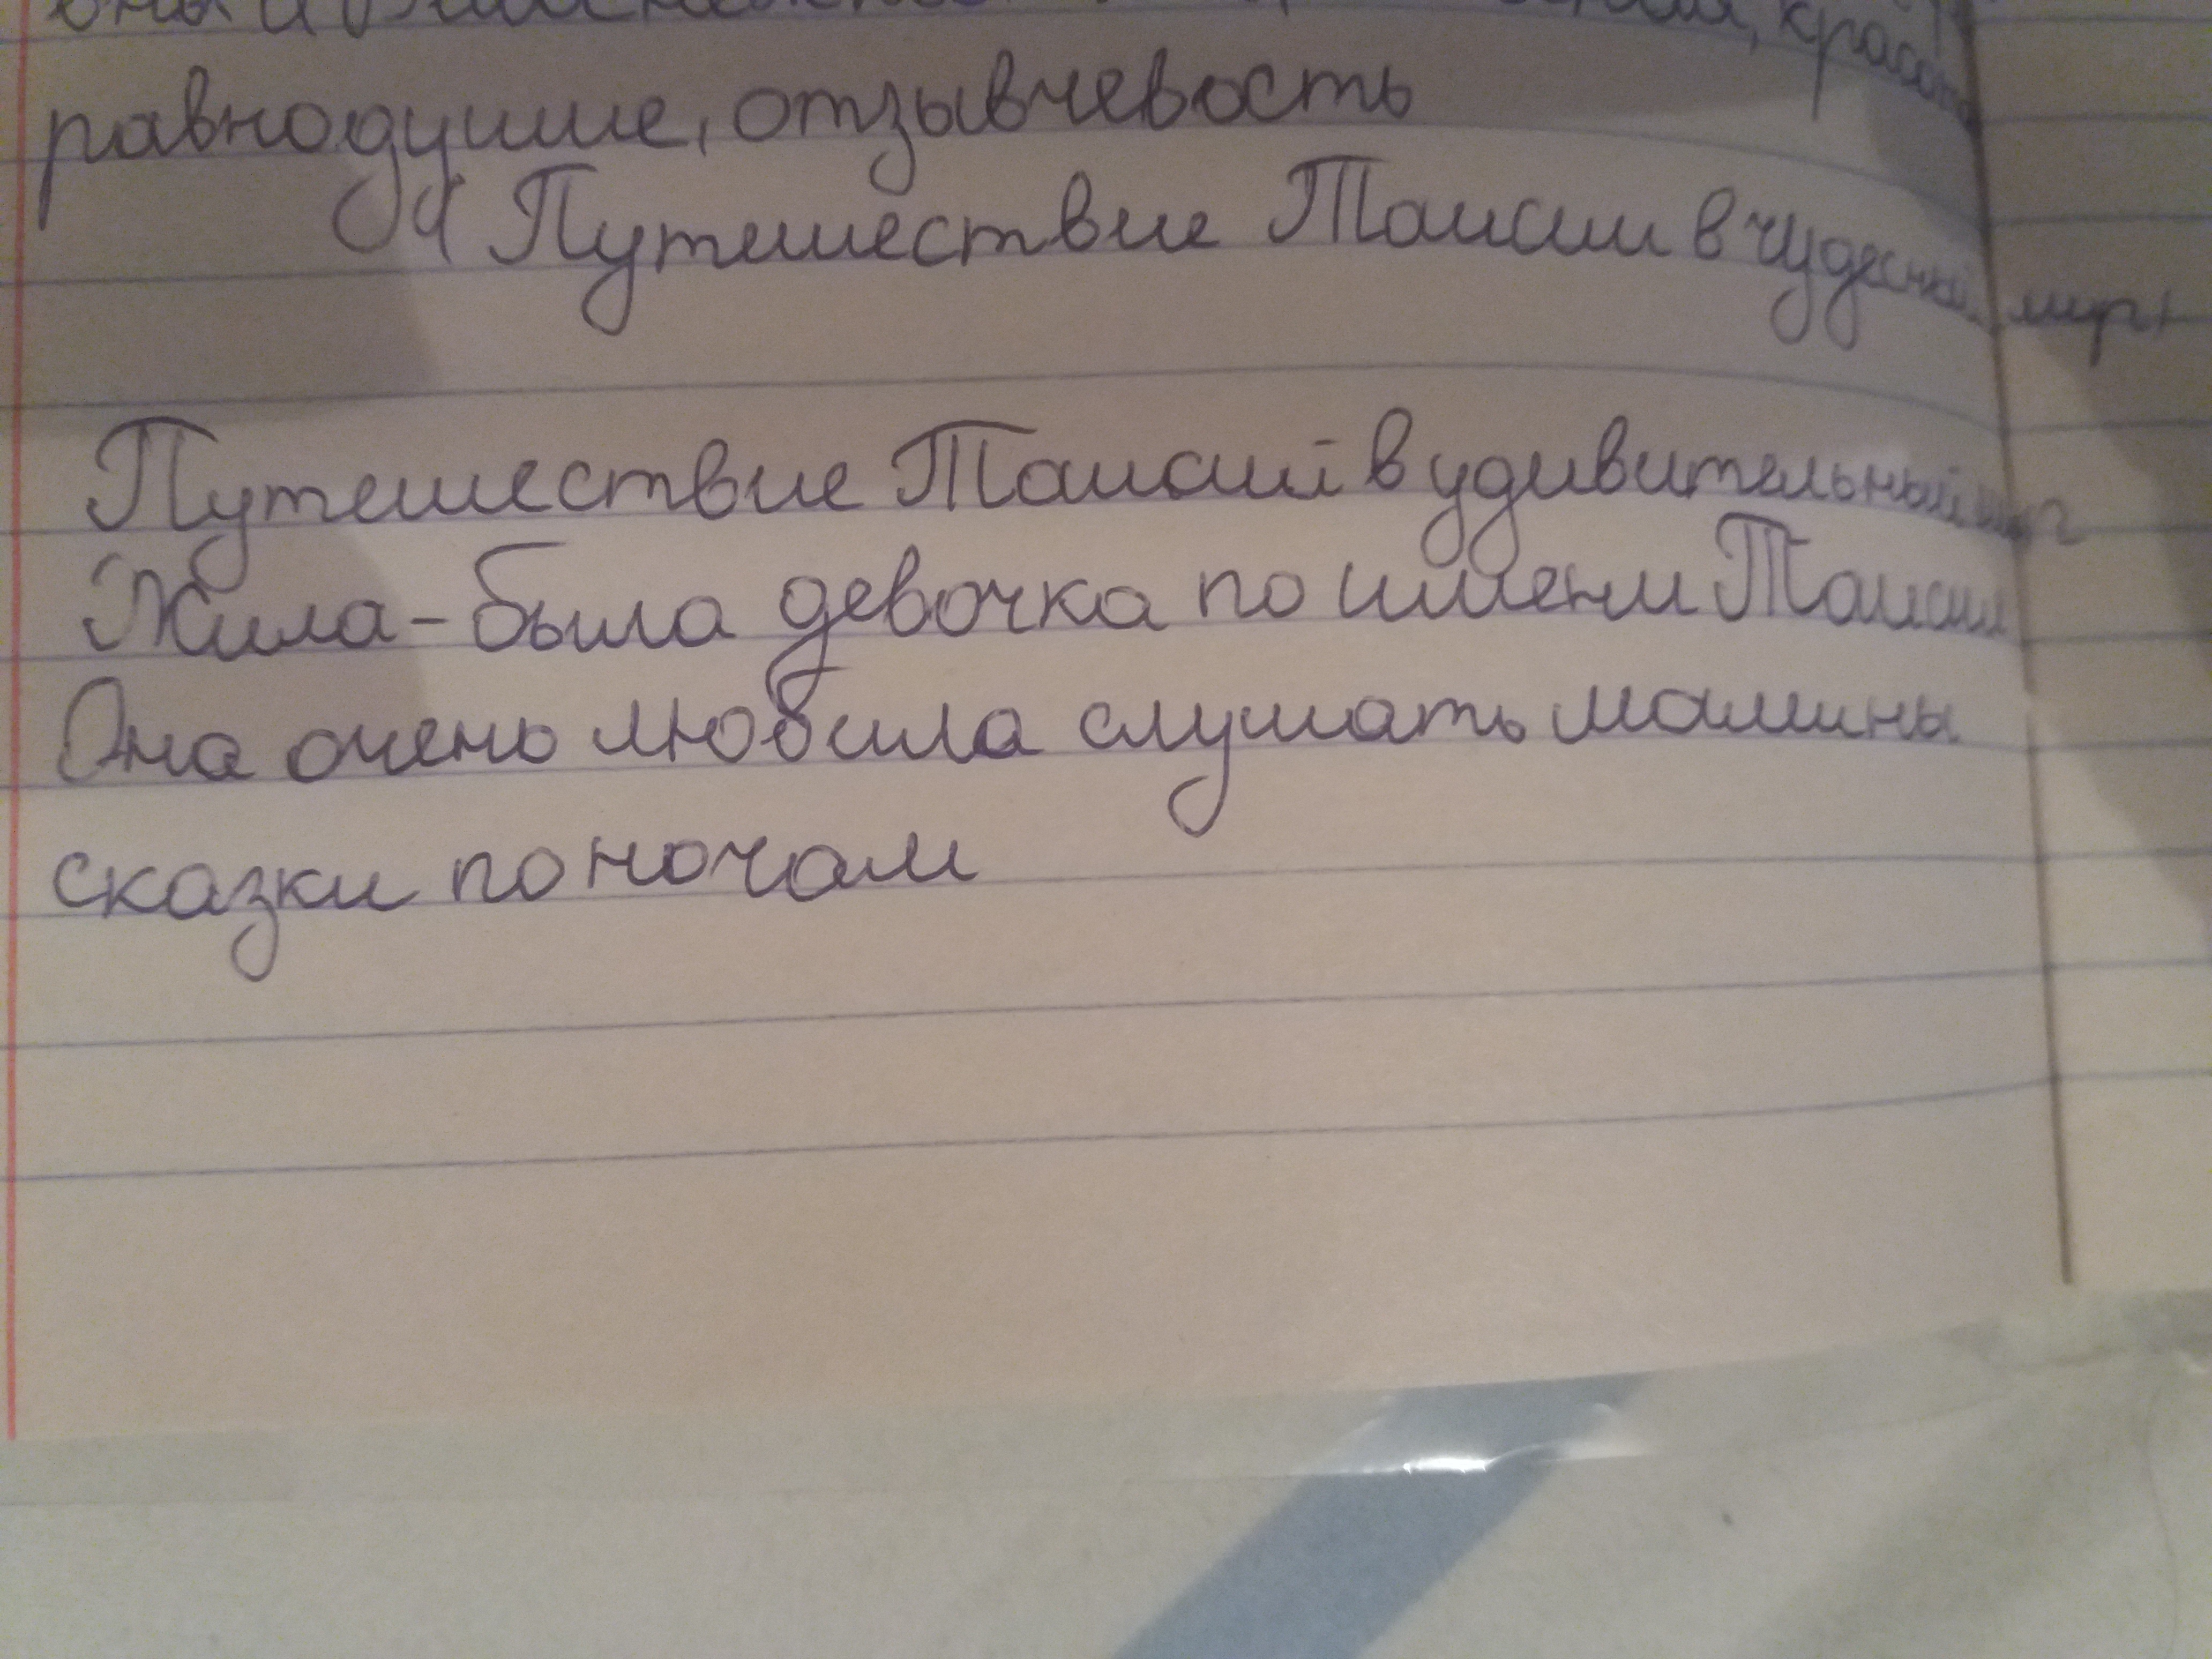 равнодушие, отзывчевость
Зд Путешествие Таисии в чудесный мир!
Путешествие Таисий в удивительный мир
Жила-была девочка по имени Таисия
Она очень любила слушать мамины
сказки по ночам